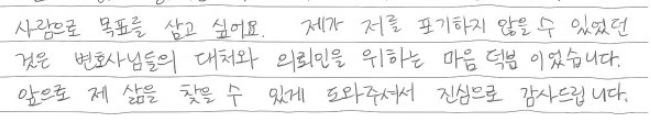 사람으로 목표를 삼고 싶어요. 제가 저를 포기하지 않을 수 있었던
것은 변호사님들의 대처와 의뢰인을 위하는 마음 덕분이었습니다.
앞으로 제 삶을 찾을 수 있게 도와주셔서 진심으로 감사드립니다.